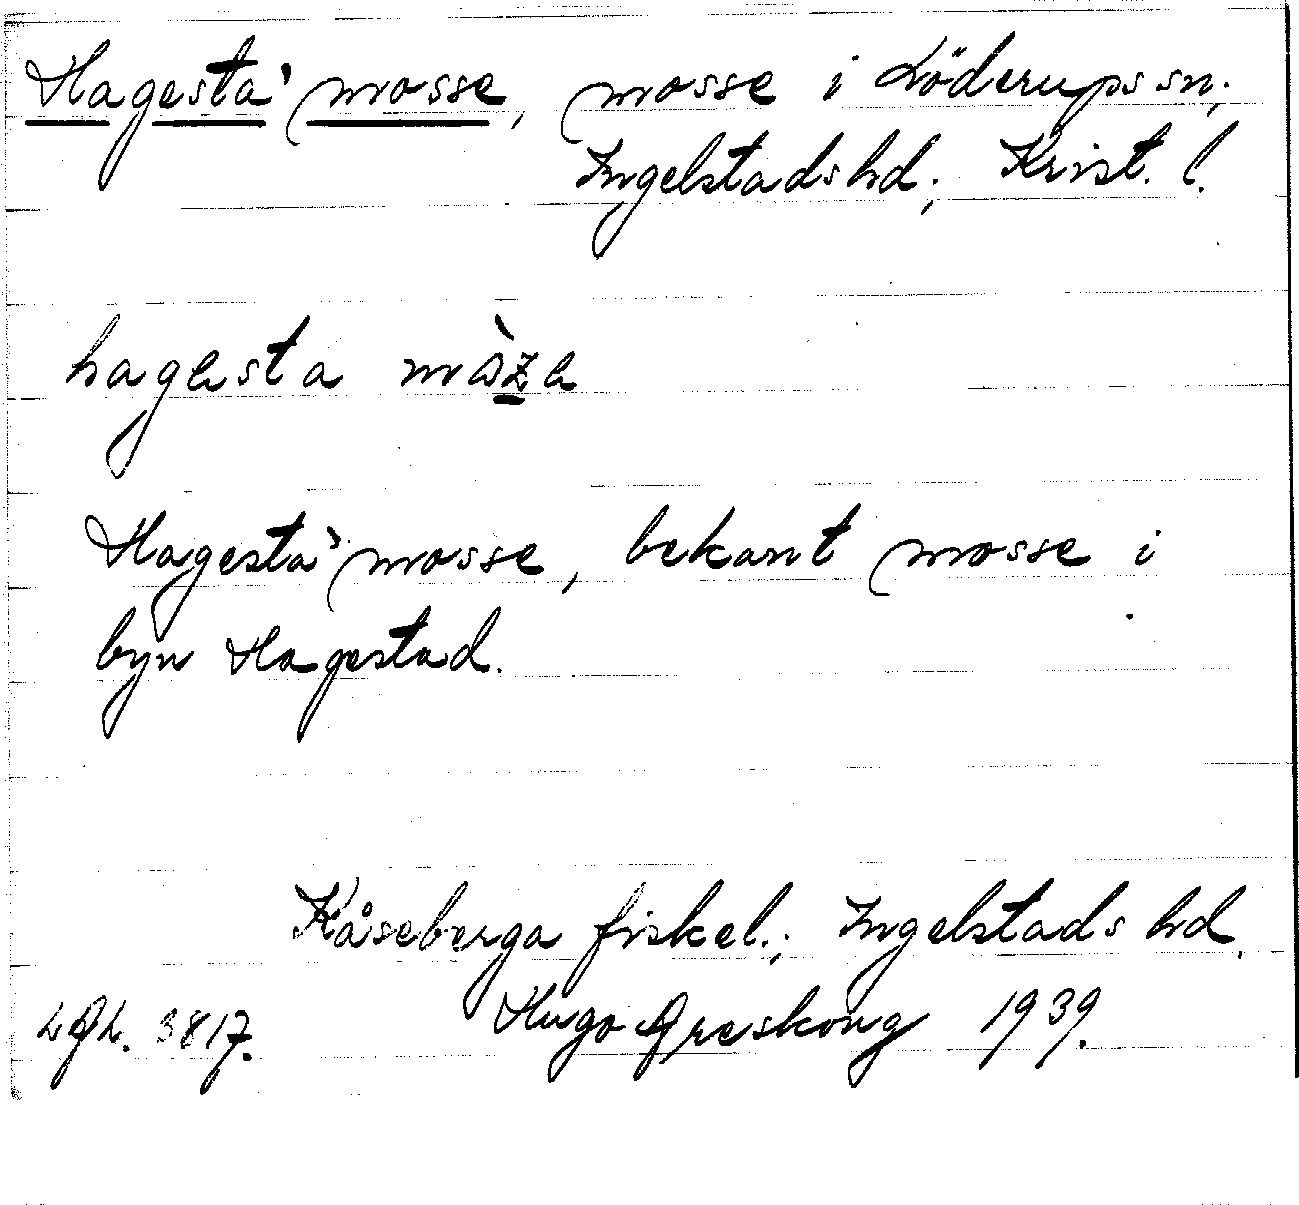 Hagesta' mosse, mosse i Löderups sn;
Ingelstads hd; Krist. l.
hagesta
Hagesta' mosse, bekant mosse i
byn Hagestad.
Kåseberga fiskel.; Ingelstads hd.
Hugo Areskoug 1939.
3817.